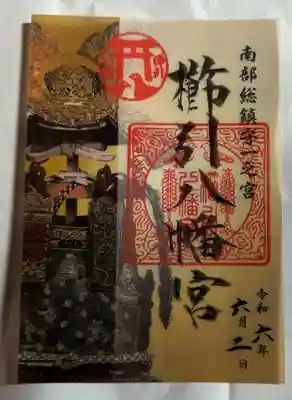 南部総鎮守一之宮
櫛引八幡宮
令和六年
六月二日